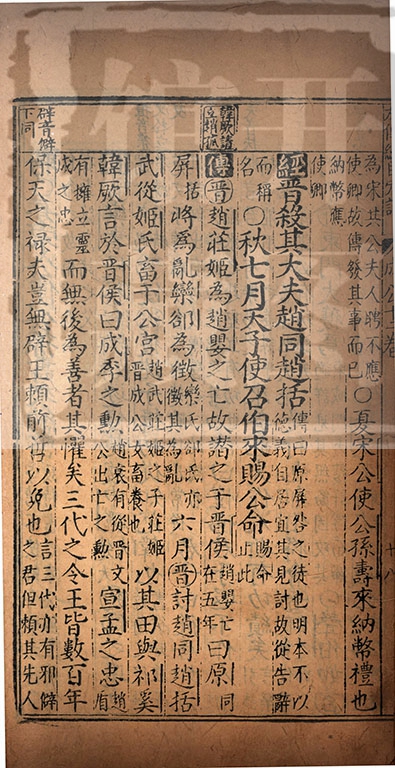 為宋其公夫人聘不應使卿故傳發其事而已○夏宋公使公孫壽來納幣禮也
納幣應使卿
經晋殺其大夫趙同趙括傳曰原屏咎之徒也明本不以德義自居宜其見討故從告辭
而稱名○秋七月天子使召伯來賜公命賜命止此
韓厥請立趙武
傳晋趙莊姬為趙嬰之亡故譖之于晉侯趙嬰亡在五年曰原同
屏括將為亂欒郤為徵欒氏郤氏亦徵其為亂六月晋討趙同趙括
武從姬氏畜于公宮趙武莊姬之子莊姬晉成公女畜養也以其田與祁奚
韓厥言於晋侯曰成季之勲趙衰有從晋文公出亡之勲宣孟之忠趙盾
有擁立靈成之忠而無後為善者其懼矣三代之令王皆數百年
辟音僻下同
保天之祿夫豈無辟王賴前哲以免也言三代亦有邪僻之君但賴其先人